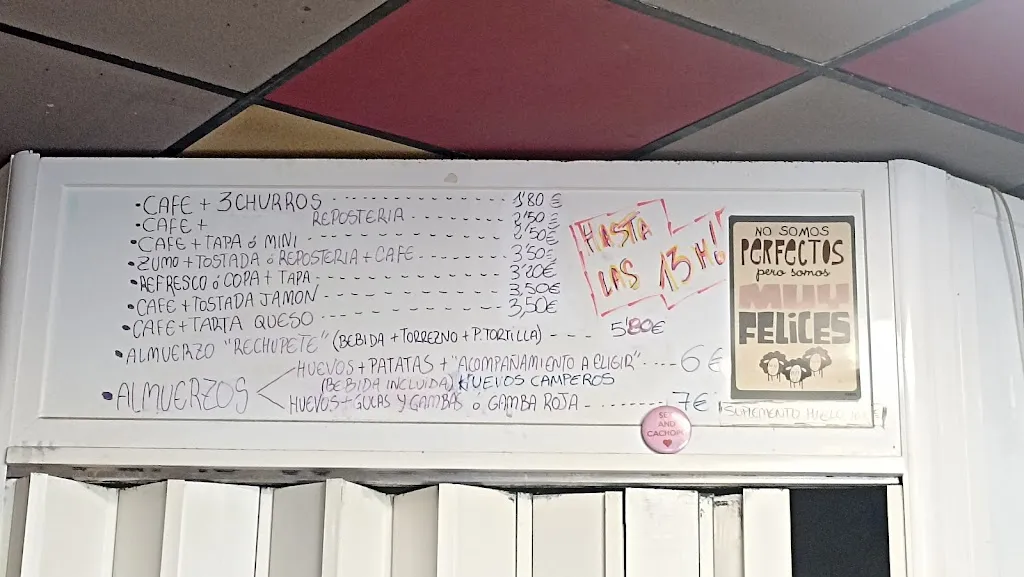 • CAFE + 3 CHURROS - - - - - 1'80 €
• CAFE + REPOSTERIA - - - - - 2'50 €
• CAFE + TAPA ó MINI - - - - - 2'50€
• ZUMO + TOSTADA ó REPOSTERIA + CAFE - - - - - 3'50€
• REFRESCO ó COPA + TAPA - - - - - 3'20€
• CAFE + TOSTADA JAMON - - - - - 3,50€
• CAFE + TARTA QUESO - - - - - 3,50€
• ALMUERZO "RECHUPETE" (BEBIDA + TORREZNO + P. TORTILLA) - - - 5'80€
• ALMUERZOS
HUEVOS + PATATAS + "ACOMPAÑAMIENTO A ELIGIR" - - - - 6€
(BEBIDA INCLUIDA) HUEVOS CAMPEROS
HUEVOS + GULAS Y GAMBAS ó GAMBA ROJA - - - - - 7€
HASTA
LAS 13 H!
NO SOMOS
PERFECTOS
pero somos
MUY
FELICES
SUPLEMENTO HIELO
AND
CACHOPO